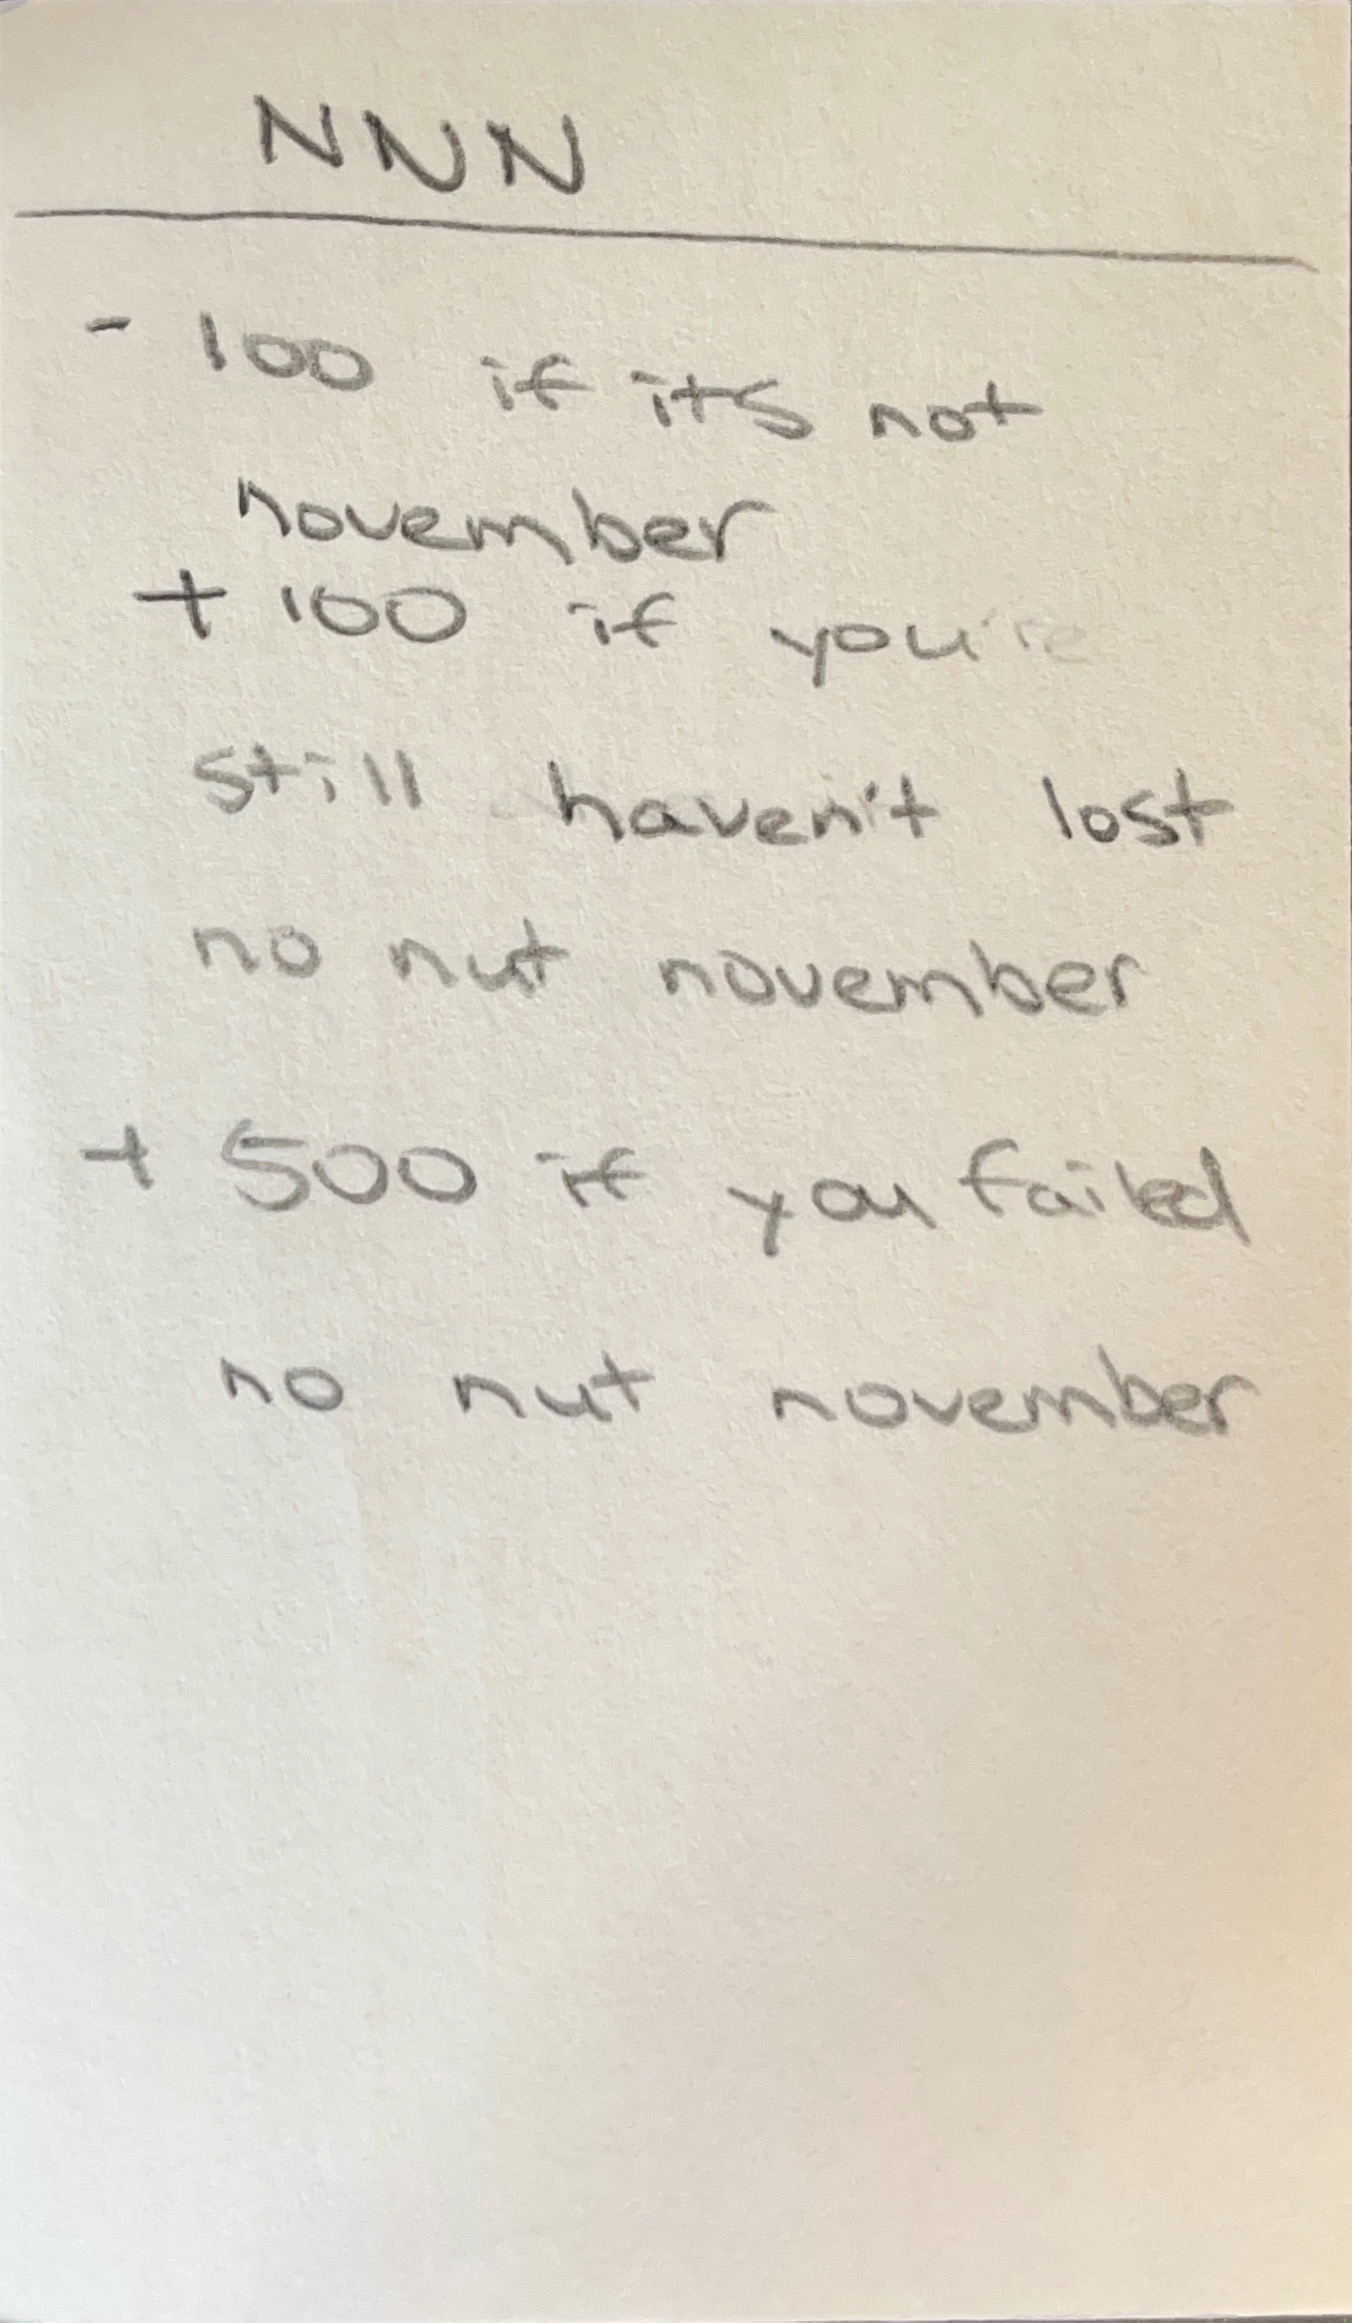 NNN
- 100 if its not
november
+ 100 if you're
still haven't lost
no nut november
+ 500 if you failed
no nut november